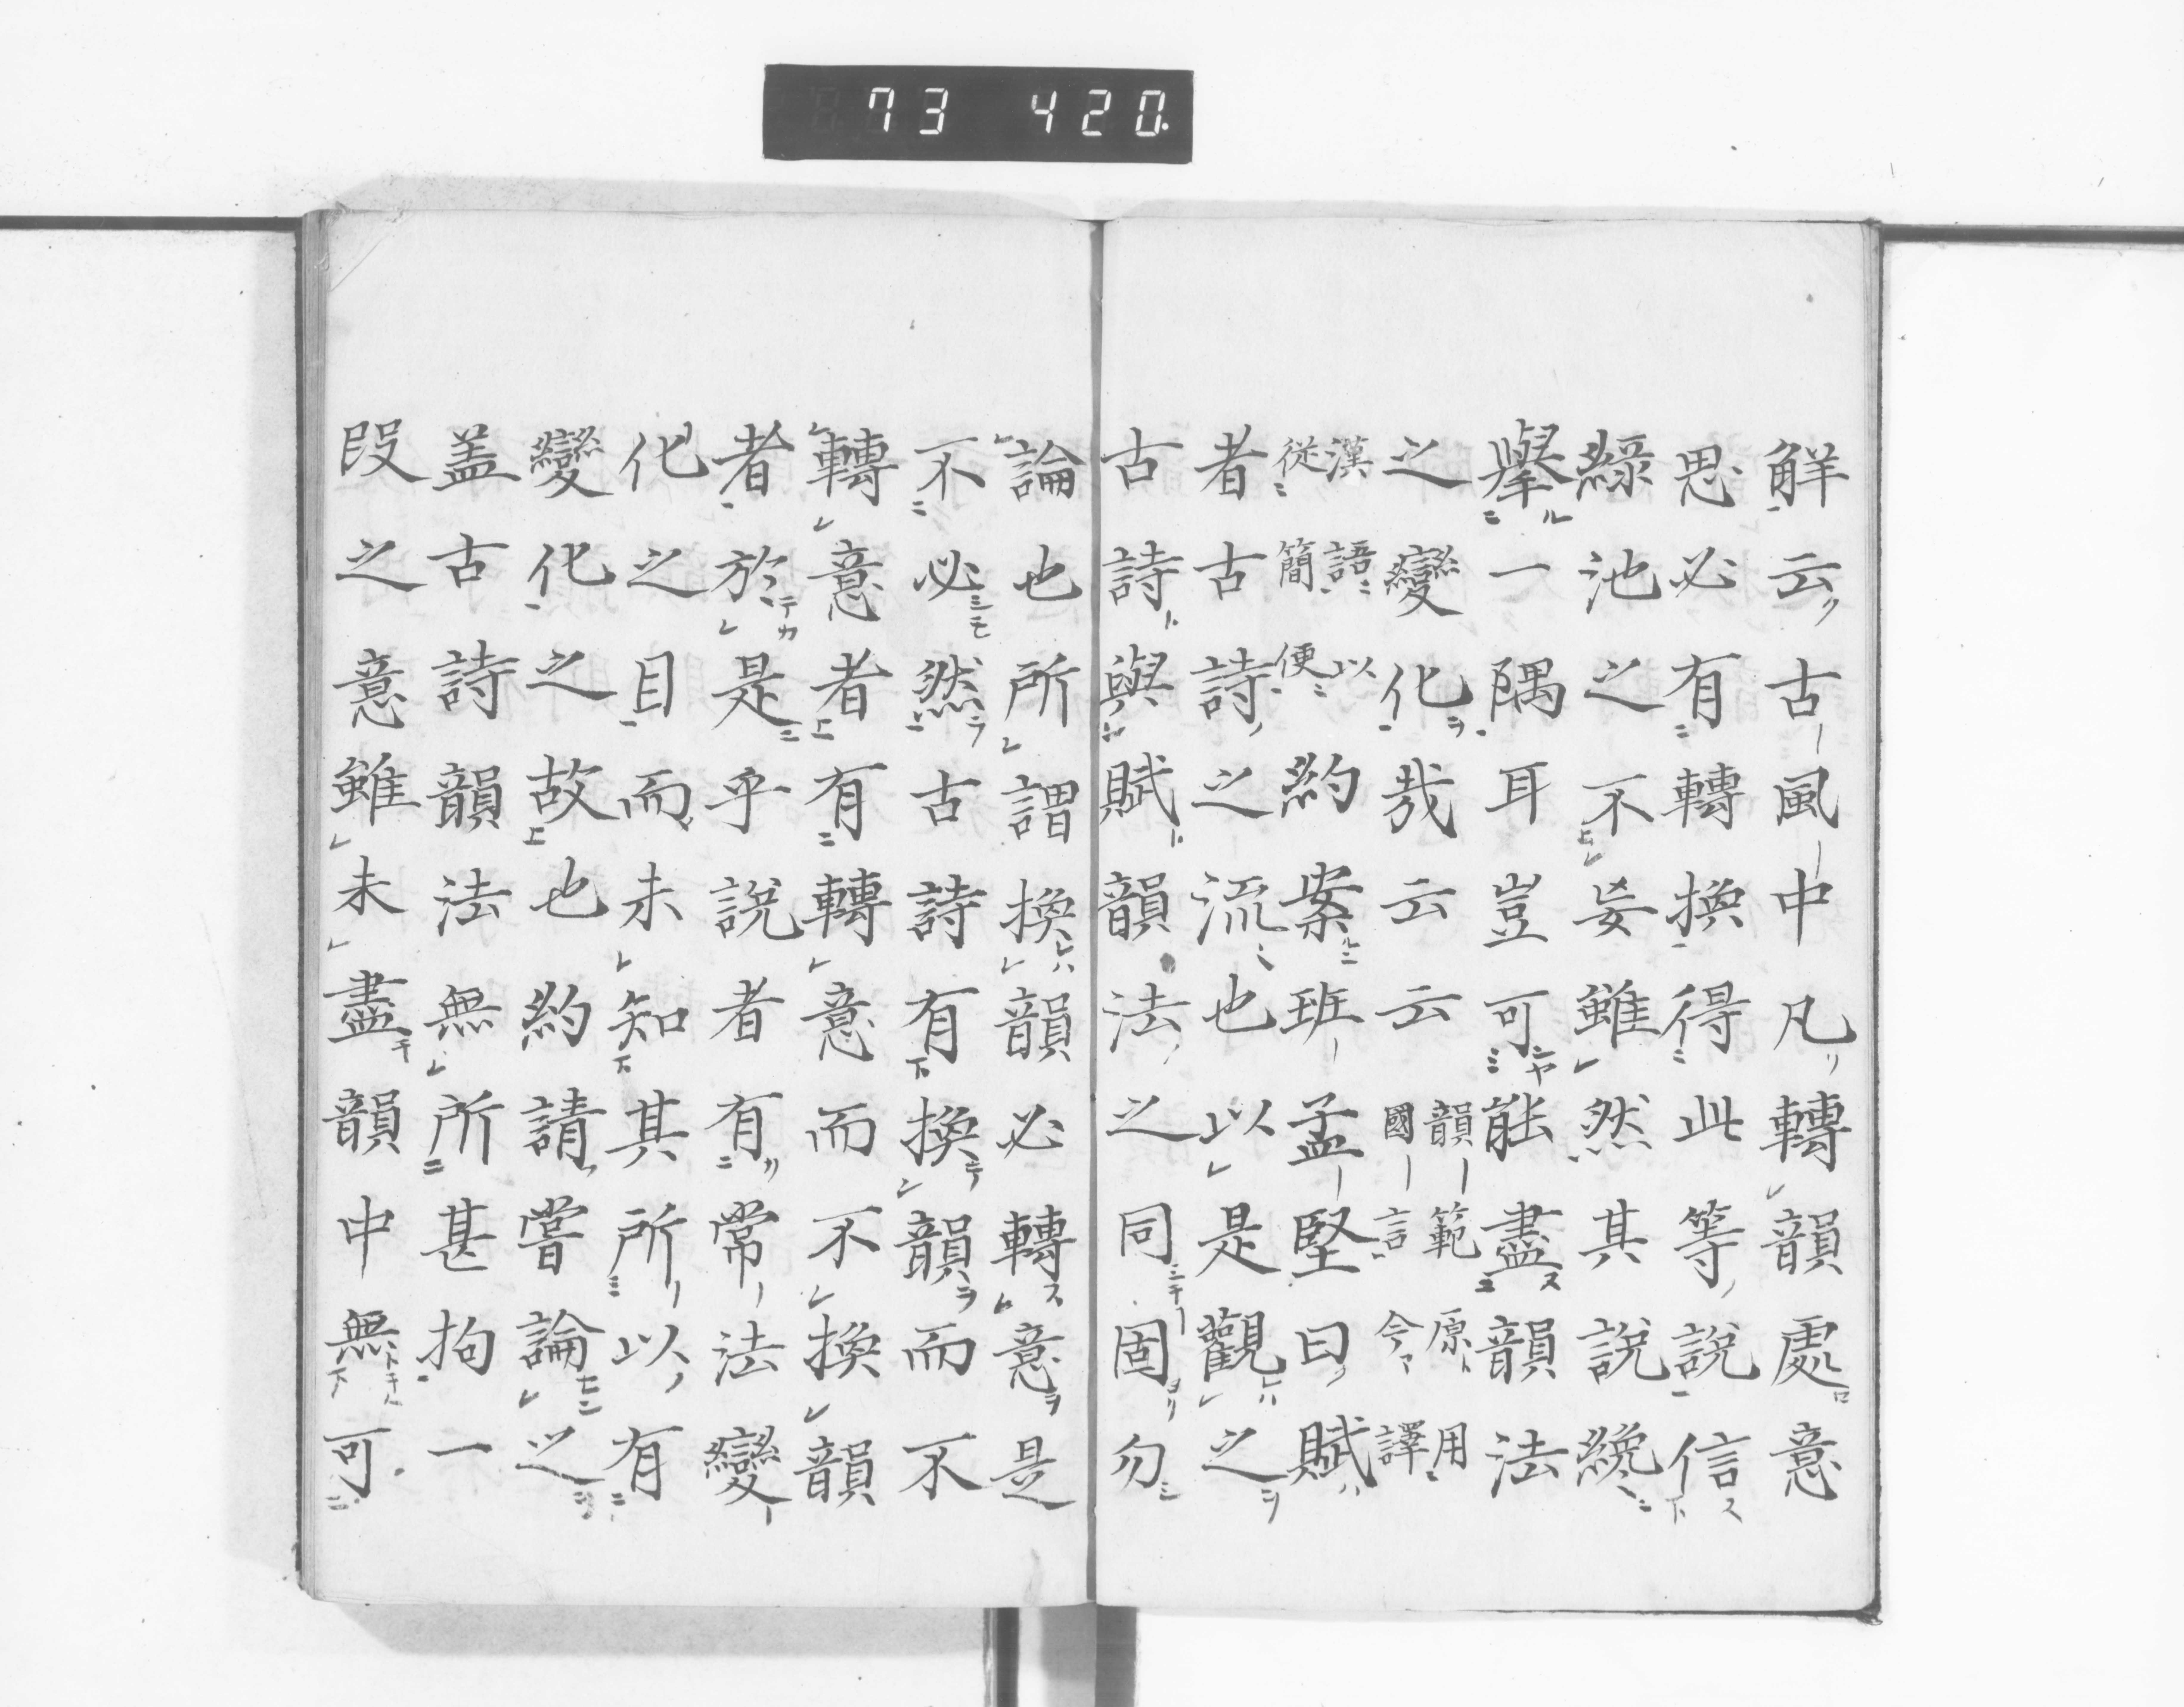 73 420
解云古風中凡轉韻處意
思必有轉換得此等說信
綠池之不妄雖然其說纔
擧一隅耳豈可能盡韻法
之變化哉云云韻範原用
國言今譯
漢語以
從簡便約案班孟堅曰賦
者古詩之流也以是觀之
古詩與賦韻法之同固勿
論也所謂換韻必轉意是
不必然古詩有換韻而不
轉意者有轉意而不換韻
者於是乎說者有常法變
化之目而未知其所以有
變化之故也約請嘗論之
盖古詩韻法無所甚拘一
段之意雖未盡韻中無可